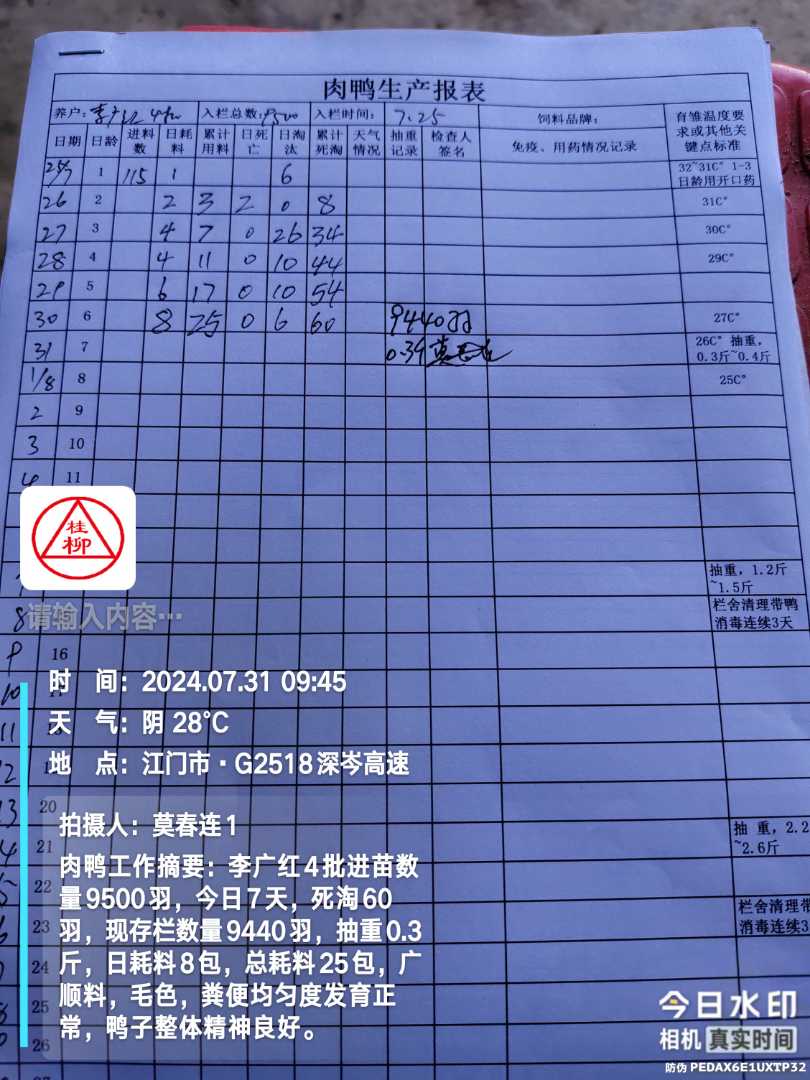 肉鸭生产报表
养户: 李广红 4批 入栏总数: 9500 入栏时间: 7.25 饲料品牌: 育雏温度要求或其他关键点标准
日期 日龄 进料数 日耗料 累计用料 日死亡 日淘汰 累计死淘 天气情况 抽重记录 检查人签名 免疫、用药情况记录
25/7 1 115 1 6 32~31C° 1-3日龄用开口药
26 2 2 3 2 0 8 31C°
27 3 4 7 0 26 34 30C°
28 4 4 11 0 10 44 29C°
29 5 6 17 0 10 54
30 6 8 25 0 6 60 9440羽 27C°
31 7 0.39 26C° 抽重,0.3斤~0.4斤
1/8 8 25C°
2 9
3 10
4 11
抽重,1.2斤~1.5斤
8 栏舍清理带鸭消毒连续3天
9 16
10
11
12
13 20
21 抽重,2.2~2.6斤
22
23 栏舍清理带 消毒连续3
24
25
26
桂柳
请输入内容…
时 间: 2024.07.31 09:45
天 气: 阴 28℃
地 点: 江门市·G2518深岑高速
拍摄人: 莫春连1
肉鸭工作摘要: 李广红4批进苗数
量9500羽,今日7天,死淘60
羽,现存栏数量9440羽,抽重0.3
斤,日耗料8包,总耗料25包,广
顺料,毛色,粪便均匀度发育正
常,鸭子整体精神良好。
今日水印
相机 真实时间
防伪 PEDAX6E1UXTP32